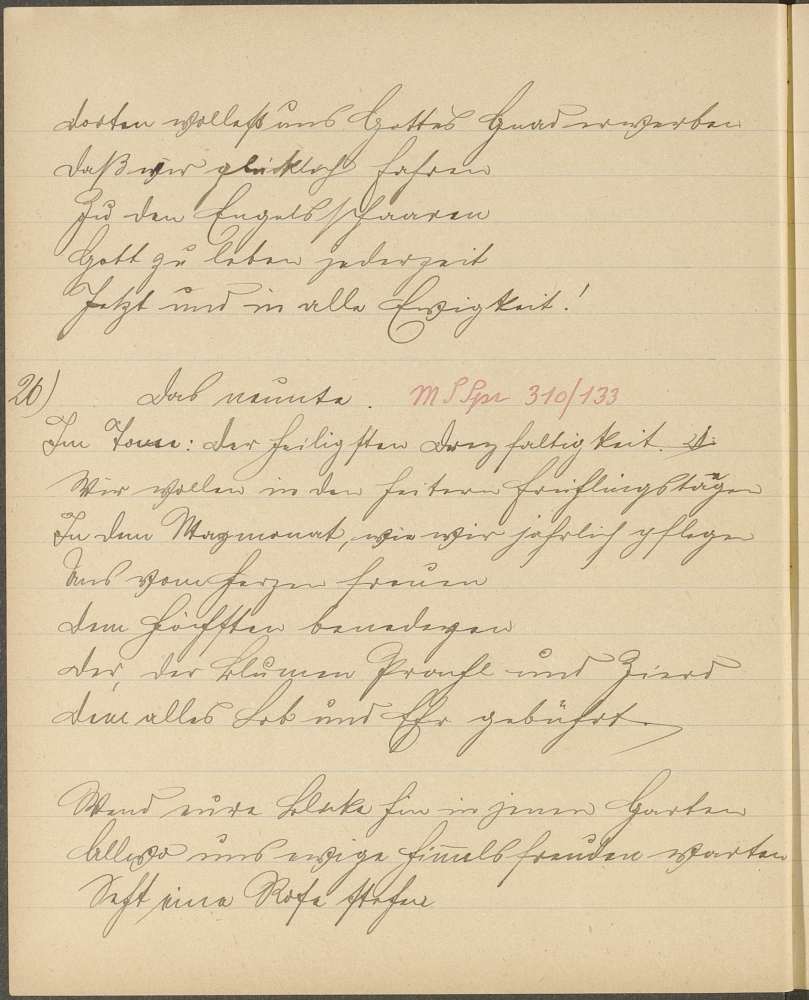 dorten wollest uns Gottes Gnad erwerben
daß wir glücklich fahren
Zu den Engelsschaaren
Gott zu loben jederzeit
Jetzt und in alle Ewigkeit!
26) Das neunte. MSSpr 310/133
Im Tone: Der heiligsten Dreyfaltigkeit
Wir wollen in den heitern Freihlingstagen
In dem Maymonat, wie wir jährlich pflegen
Uns vom Herzen freuen
dem Höchsten benedeyen
der, der Blumen Pracht und Zierd
dem alles Lob und Ehr gebührt.
Wend eure Blicke hin in jenen Garten
Allwo uns ewige Himmelsfreuden warten
Seht eine Rose stehen